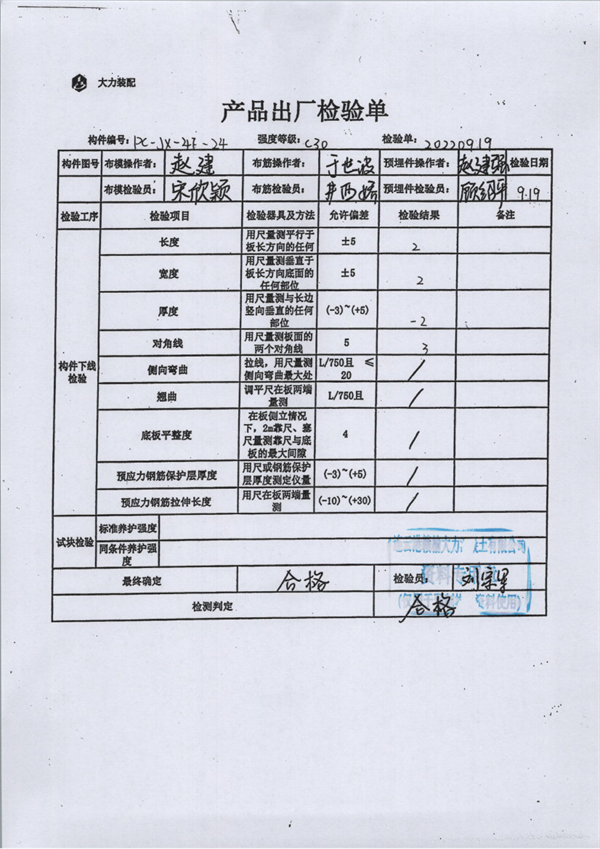 大力装配
产品出厂检验单
构件编号: PC-JX-4F-24 强度等级: C30 检验单: 20220919
构件图号 布模操作者: 赵建 布筋操作者: 于世波 预埋件操作者: 赵建强 检验日期
布模检验员: 宋欣颖 布筋检验员: 预埋件检验员: 9.19
检验工序 检验项目 检验器具及方法 允许偏差 检验结果 备注
构件下线检验
长度 用尺量测平行于板长方向的任何 ±5 2
宽度 用尺量测垂直于板长方向底面的任何部位 ±5 2
厚度 用尺量测与长边竖向垂直的任何部位 (-3)~(+5) -2
对角线 用尺量测板面的两个对角线 5 3
侧向弯曲 拉线，用尺量测侧向弯曲最大处 L/750且 ≤20 /
翘曲 调平尺在板两端量测 L/750且 /
底板平整度 在板侧立情况下，2m靠尺、塞尺量测靠尺与底板的最大间隙 4 /
预应力钢筋保护层厚度 用尺或钢筋保护层厚度测定仪量 (-3)~(+5) /
预应力钢筋拉伸长度 用尺在板两端量测 (-10)~(+30) /
试块检验 标准养护强度
同条件养护强度
最终确定 合格 检验员:
检测判定 合格
资料专用
资料使用)